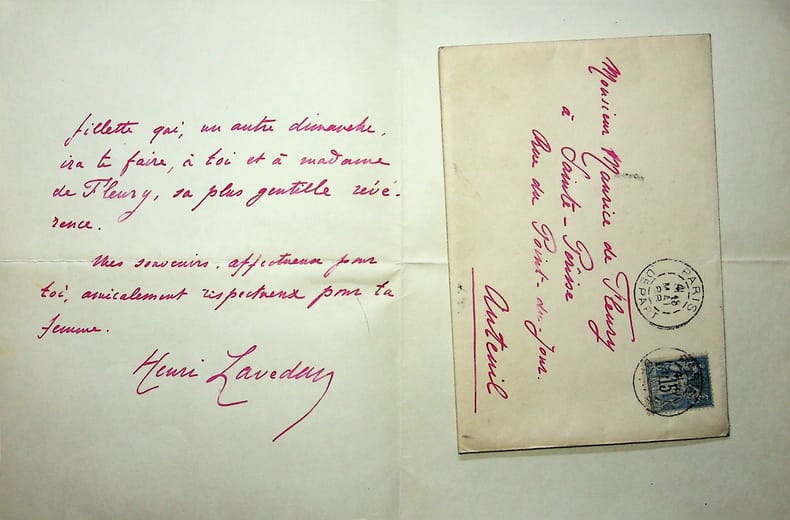 fillette qui, un autre dimanche,
ira te faire, à toi et à madame
de Fleury, sa plus gentille révé-
rence.
Mes souvenirs affectueux pour
toi, amicalement respectueux pour ta
femme.
Henri Lavedan
Monsieur Maurice de Fleury
à Sainte-Périne
Rue du Point-du-Jour.
Auteuil
PARIS
MAI
DEPART
15